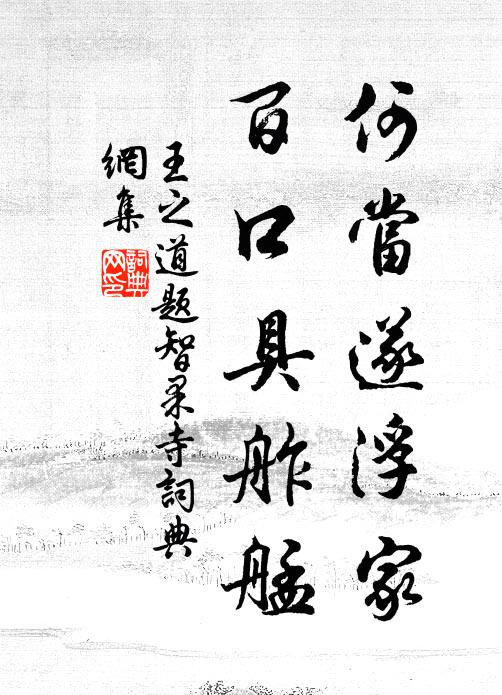 何當遂浮家
百口具舴艋
王之道題智果寺詞典
網集
詞典
网印